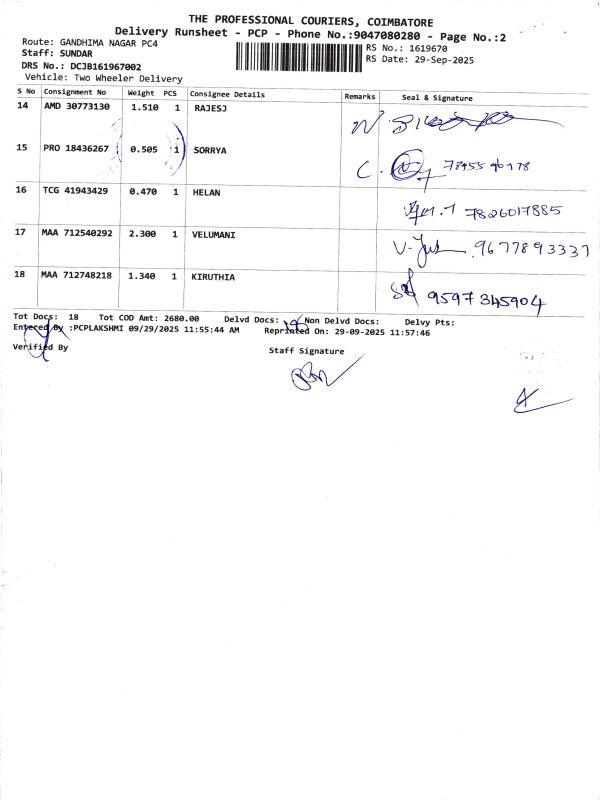 THE PROFESSIONAL COURIERS, COIMBATORE
Delivery Runsheet - PCP - Phone No.:9047080280 - Page No.:2
Route: GANDHIMA NAGAR PC4 RS No.: 1619670
Staff: SUNDAR RS Date: 29-Sep-2025
DRS No.: DCJB161967002
Vehicle: Two Wheeler Delivery
S No Consignment No Weight PCS Consignee Details Remarks Seal & Signature
14 AMD 30773130 1.510 1 RAJESJ
15 PRO 18436267 0.505 1 SORRYA
16 TCG 41943429 0.470 1 HELAN 7826017885
17 MAA 712540292 2.300 1 VELUMANI 9677893337
18 MAA 712748218 1.340 1 KIRUTHIA 9597345904
Tot Docs: 18 Tot COD Amt: 2680.00 Delvd Docs: 18 Non Delvd Docs: Delvy Pts:
Entered By :PCPLAKSHMI 09/29/2025 11:55:44 AM Reprinted On: 29-09-2025 11:57:46
Verified By Staff Signature